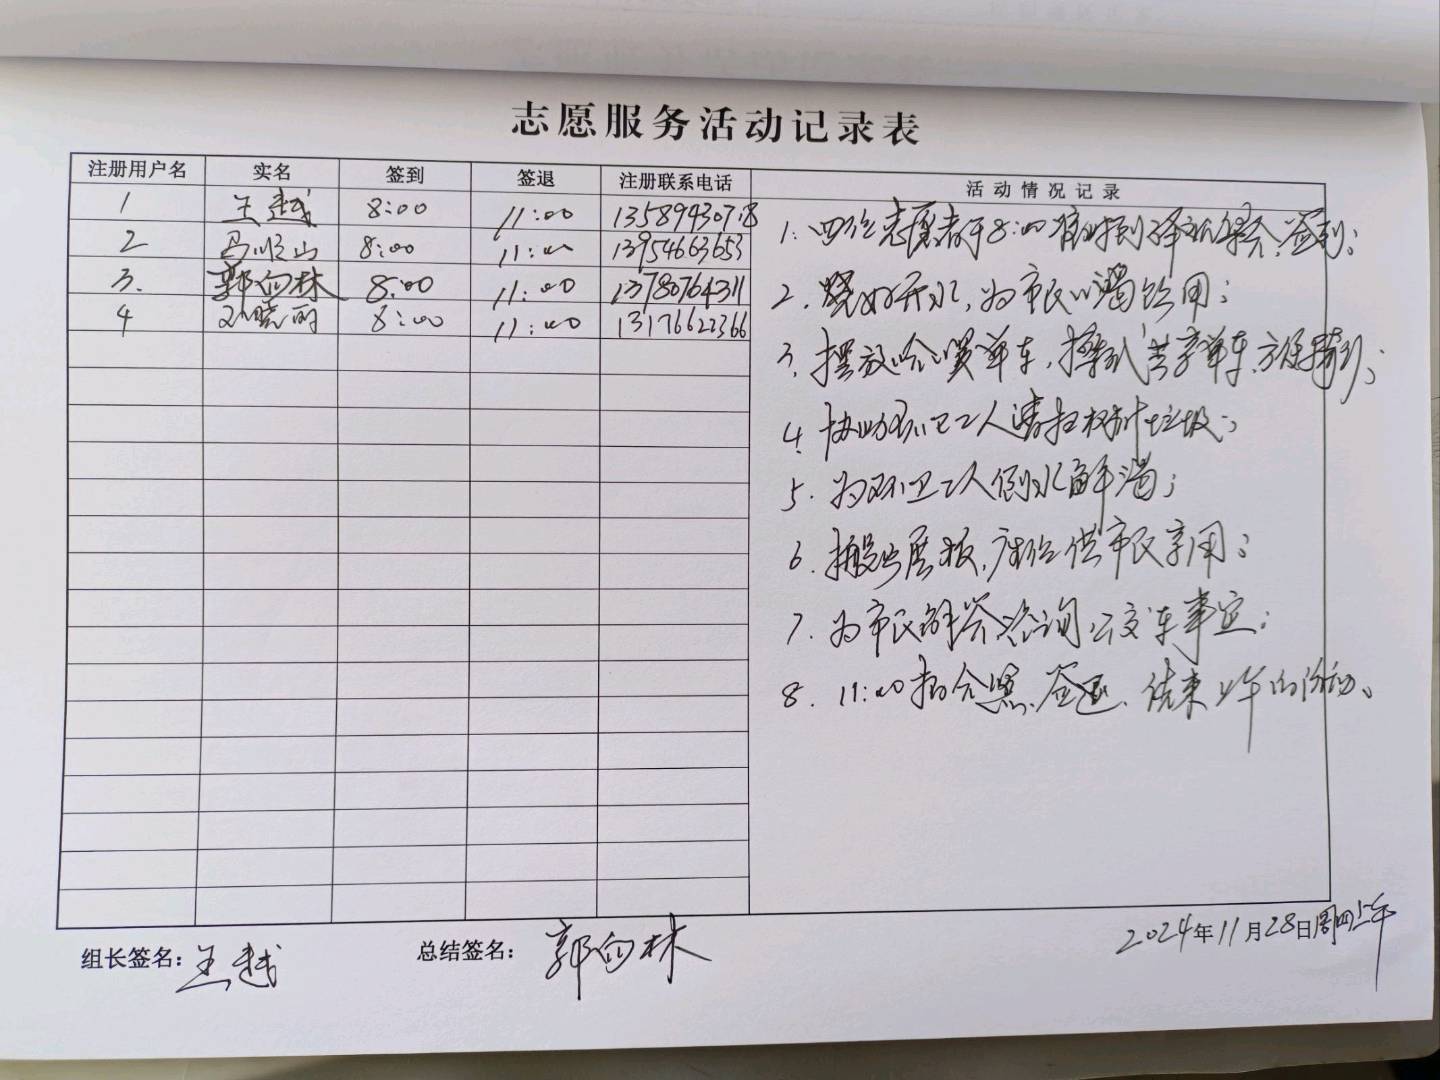 志愿服务活动记录表
注册用户名 实名 签到 签退 注册联系电话 活动情况记录
1 王越 8:00 11:00 13589430718
2 马顺山 8:00 11:00 13954663653
3. 郭向林 8:00 11:00 13780764311
4 晓明 8:00 11:00 13176622366
1. 四位志愿者于8:00准时到驿站集合,签到;
2. 烧好开水,为市民以解渴饮用;
3. 摆放哈啰单车,擦拭共享单车,方便骑行;
4. 协助环卫工人清扫树叶垃圾;
5. 为环卫工人倒水解渴;
6. 搬出展板,座位供市民享用;
7. 为市民解答咨询公交车事宜;
8. 11:00拍合照、签退,结束上午的活动。
组长签名:王越 总结签名:郭向林 2024年11月28日周四上午